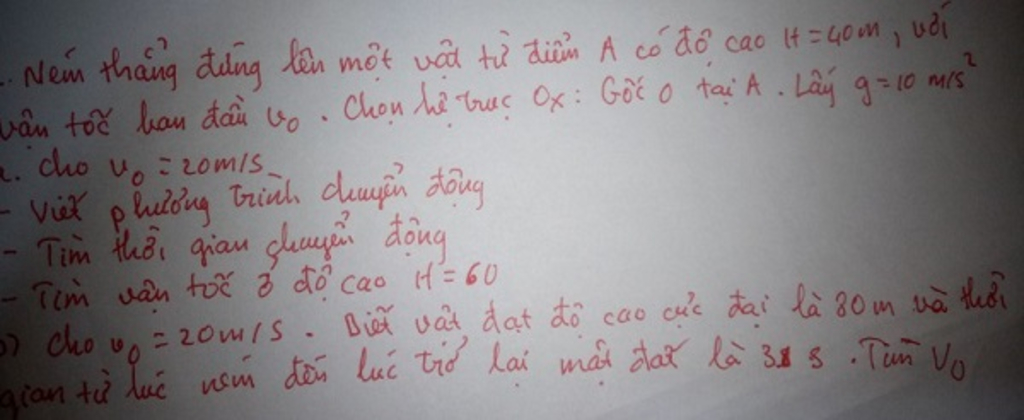 . Ném thẳng đứng lên một vật từ điểm A có độ cao H = 40m, với
vận tốc ban đầu v₀. Chọn hệ trục Ox: Gốc O tại A. Lấy g = 10 m/s²
a. Cho v₀ = 20m/s
- Viết phương trình chuyển động
- Tìm thời gian chuyển động
- Tìm vận tốc ở độ cao H = 60
b) Cho v₀ = 20m/s. Biết vật đạt độ cao cực đại là 80m và thời
gian từ lúc ném đến lúc trở lại mặt đất là s. Tìm V₀